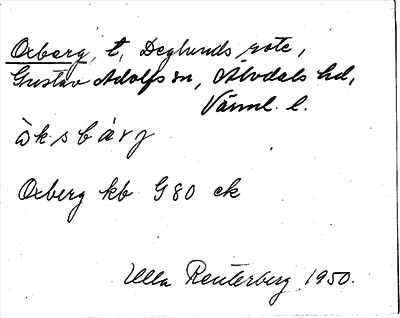 Oxberg, t, Deglunds rote,
Gustav Adolfs sn, Älvdals hd,
Värml. l.
òksbàrj
Oxberg kb G80 ck
Ulla Reuterberg 1950.